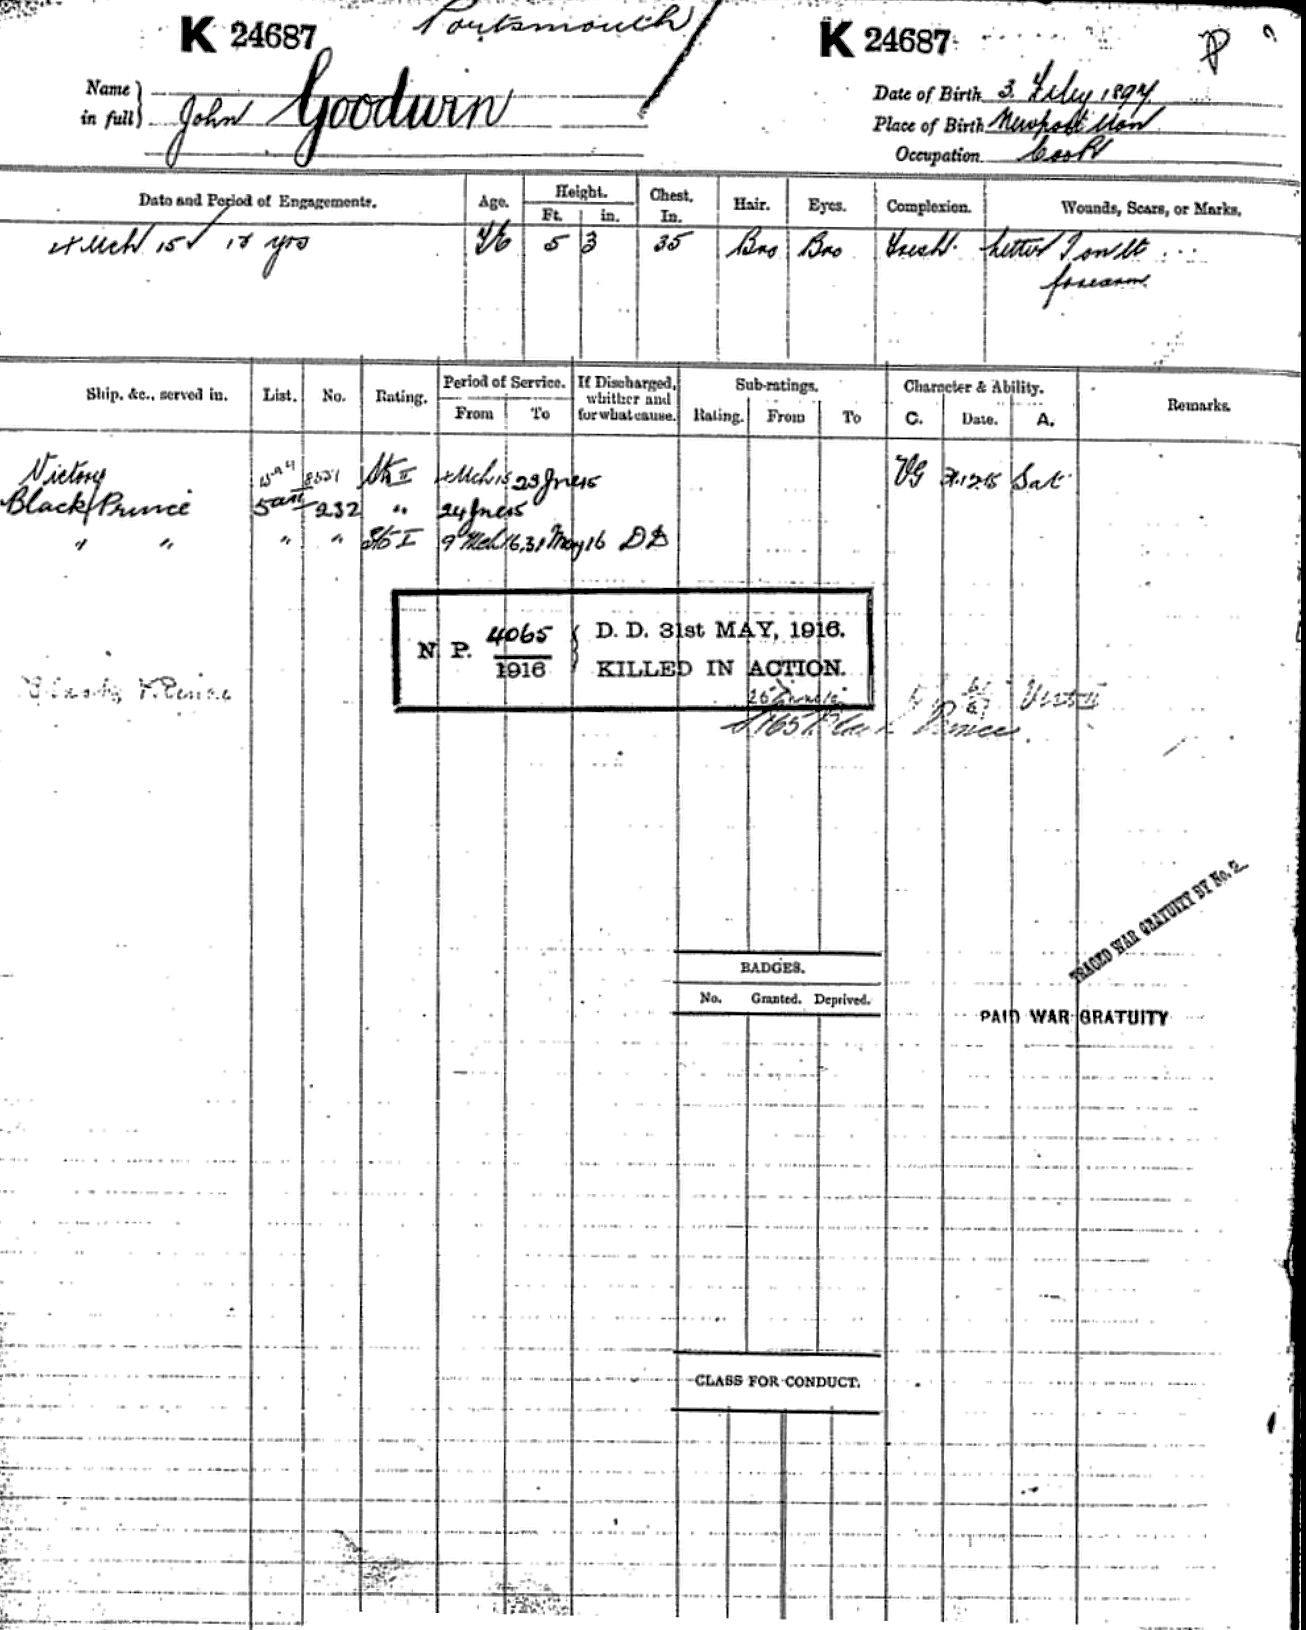 Portsmouth
K 24687
K 24687
Name in full John Goodwin
Date of Birth 3. 1897
Place of Birth Newport Mon
Occupation Cook
Date and Period of Engagements. Age. Height. Ft. in. Chest. In. Hair. Eyes. Complexion. Wounds, Scars, or Marks.
4 Mch 15 12 yrs 5 3 35 Bro Bro Fresh letter J on lt
forearm
Ship, &c., served in. List. No. Rating. Period of Service. From To If Discharged, whither and for what cause. Sub-ratings. Rating. From To Character & Ability. C. Date. A. Remarks.
Victory Sto II 4 Mch 15 23 Jne 15 VG 31.12.15 Sat
Black Prince 5 232 " 24 Jne 15
" " " " Sto I 9 Mch 16 31 May 16 DD
N. P. 4065/1916 D. D. 31st MAY, 1916.
KILLED IN ACTION.
Prince
TRACED WAR GRATUITY BY No. 2
BADGES.
No. Granted. Deprived.
PAID WAR GRATUITY
CLASS FOR CONDUCT.